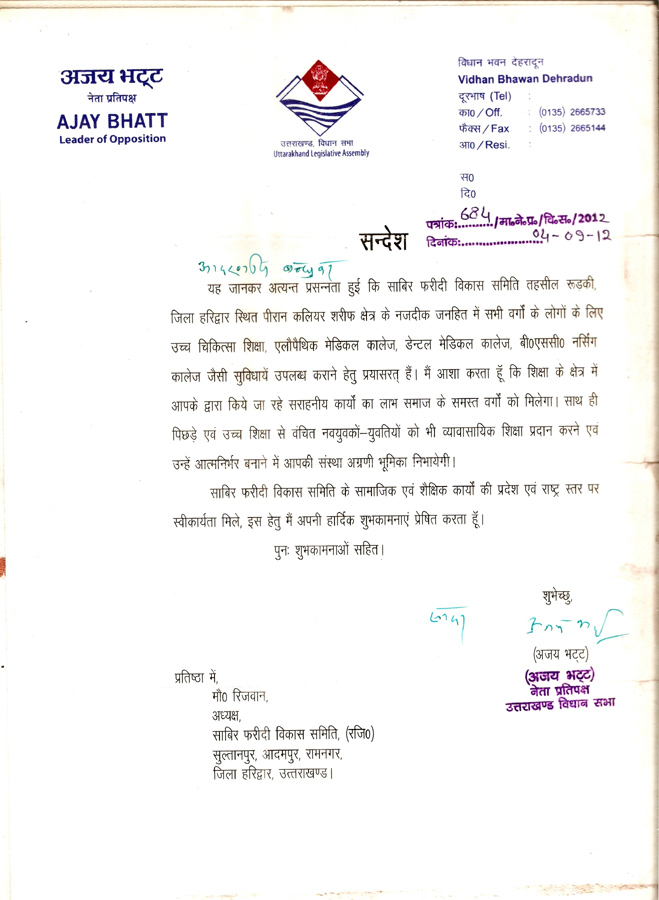 अजय भट्ट
नेता प्रतिपक्ष
AJAY BHATT
Leader of Opposition
उत्तराखण्ड, विधान सभा
Uttarakhand Legislative Assembly
विधान भवन देहरादून
Vidhan Bhawan Dehradun
दूरभाष (Tel) :
का0 / Off. : (0135) 2665733
फैक्स / Fax : (0135) 2665144
आ0 / Resi. :
स0
दि0
पत्रांकः 684 /मा०ने०प्र०/वि०स०/2012
दिनांकः 04-09-12
सन्देश
यह जानकर अत्यन्त प्रसन्नता हुई कि साबिर फरीदी विकास समिति तहसील रूडकी,
जिला हरिद्वार स्थित पीरान कलियर शरीफ क्षेत्र के नजदीक जनहित में सभी वर्गों के लोगों के लिए
उच्च चिकित्सा शिक्षा, एलौपैथिक मेडिकल कालेज, डेन्टल मेडिकल कालेज, बी0एससी0 नर्सिग
कालेज जैसी सुविधायें उपलब्ध कराने हेतु प्रयासरत् हैं। मैं आशा करता हूँ कि शिक्षा के क्षेत्र में
आपके द्वारा किये जा रहे सराहनीय कार्यो का लाभ समाज के समस्त वर्गो को मिलेगा। साथ ही
पिछड़े एवं उच्च शिक्षा से वंचित नवयुवकों–युवतियों को भी व्यावासायिक शिक्षा प्रदान करने एवं
उन्हें आत्मनिर्भर बनाने में आपकी संस्था अग्रणी भूमिका निभायेगी।
साबिर फरीदी विकास समिति के सामाजिक एवं शैक्षिक कार्यों की प्रदेश एवं राष्ट्र स्तर पर
स्वीकार्यता मिले, इस हेतु मैं अपनी हार्दिक शुभकामनाएं प्रेषित करता हूँ।
पुनः शुभकामनाओं सहित।
शुभेच्छु,
(अजय भट्ट)
(अजय भट्ट)
नेता प्रतिपक्ष
उत्तराखण्ड विधान सभा
प्रतिष्ठा में,
मौ0 रिजवान,
अध्यक्ष,
साबिर फरीदी विकास समिति, (रजि0)
सुल्तानपुर, आदमपुर, रामनगर,
जिला हरिद्वार, उत्तराखण्ड।